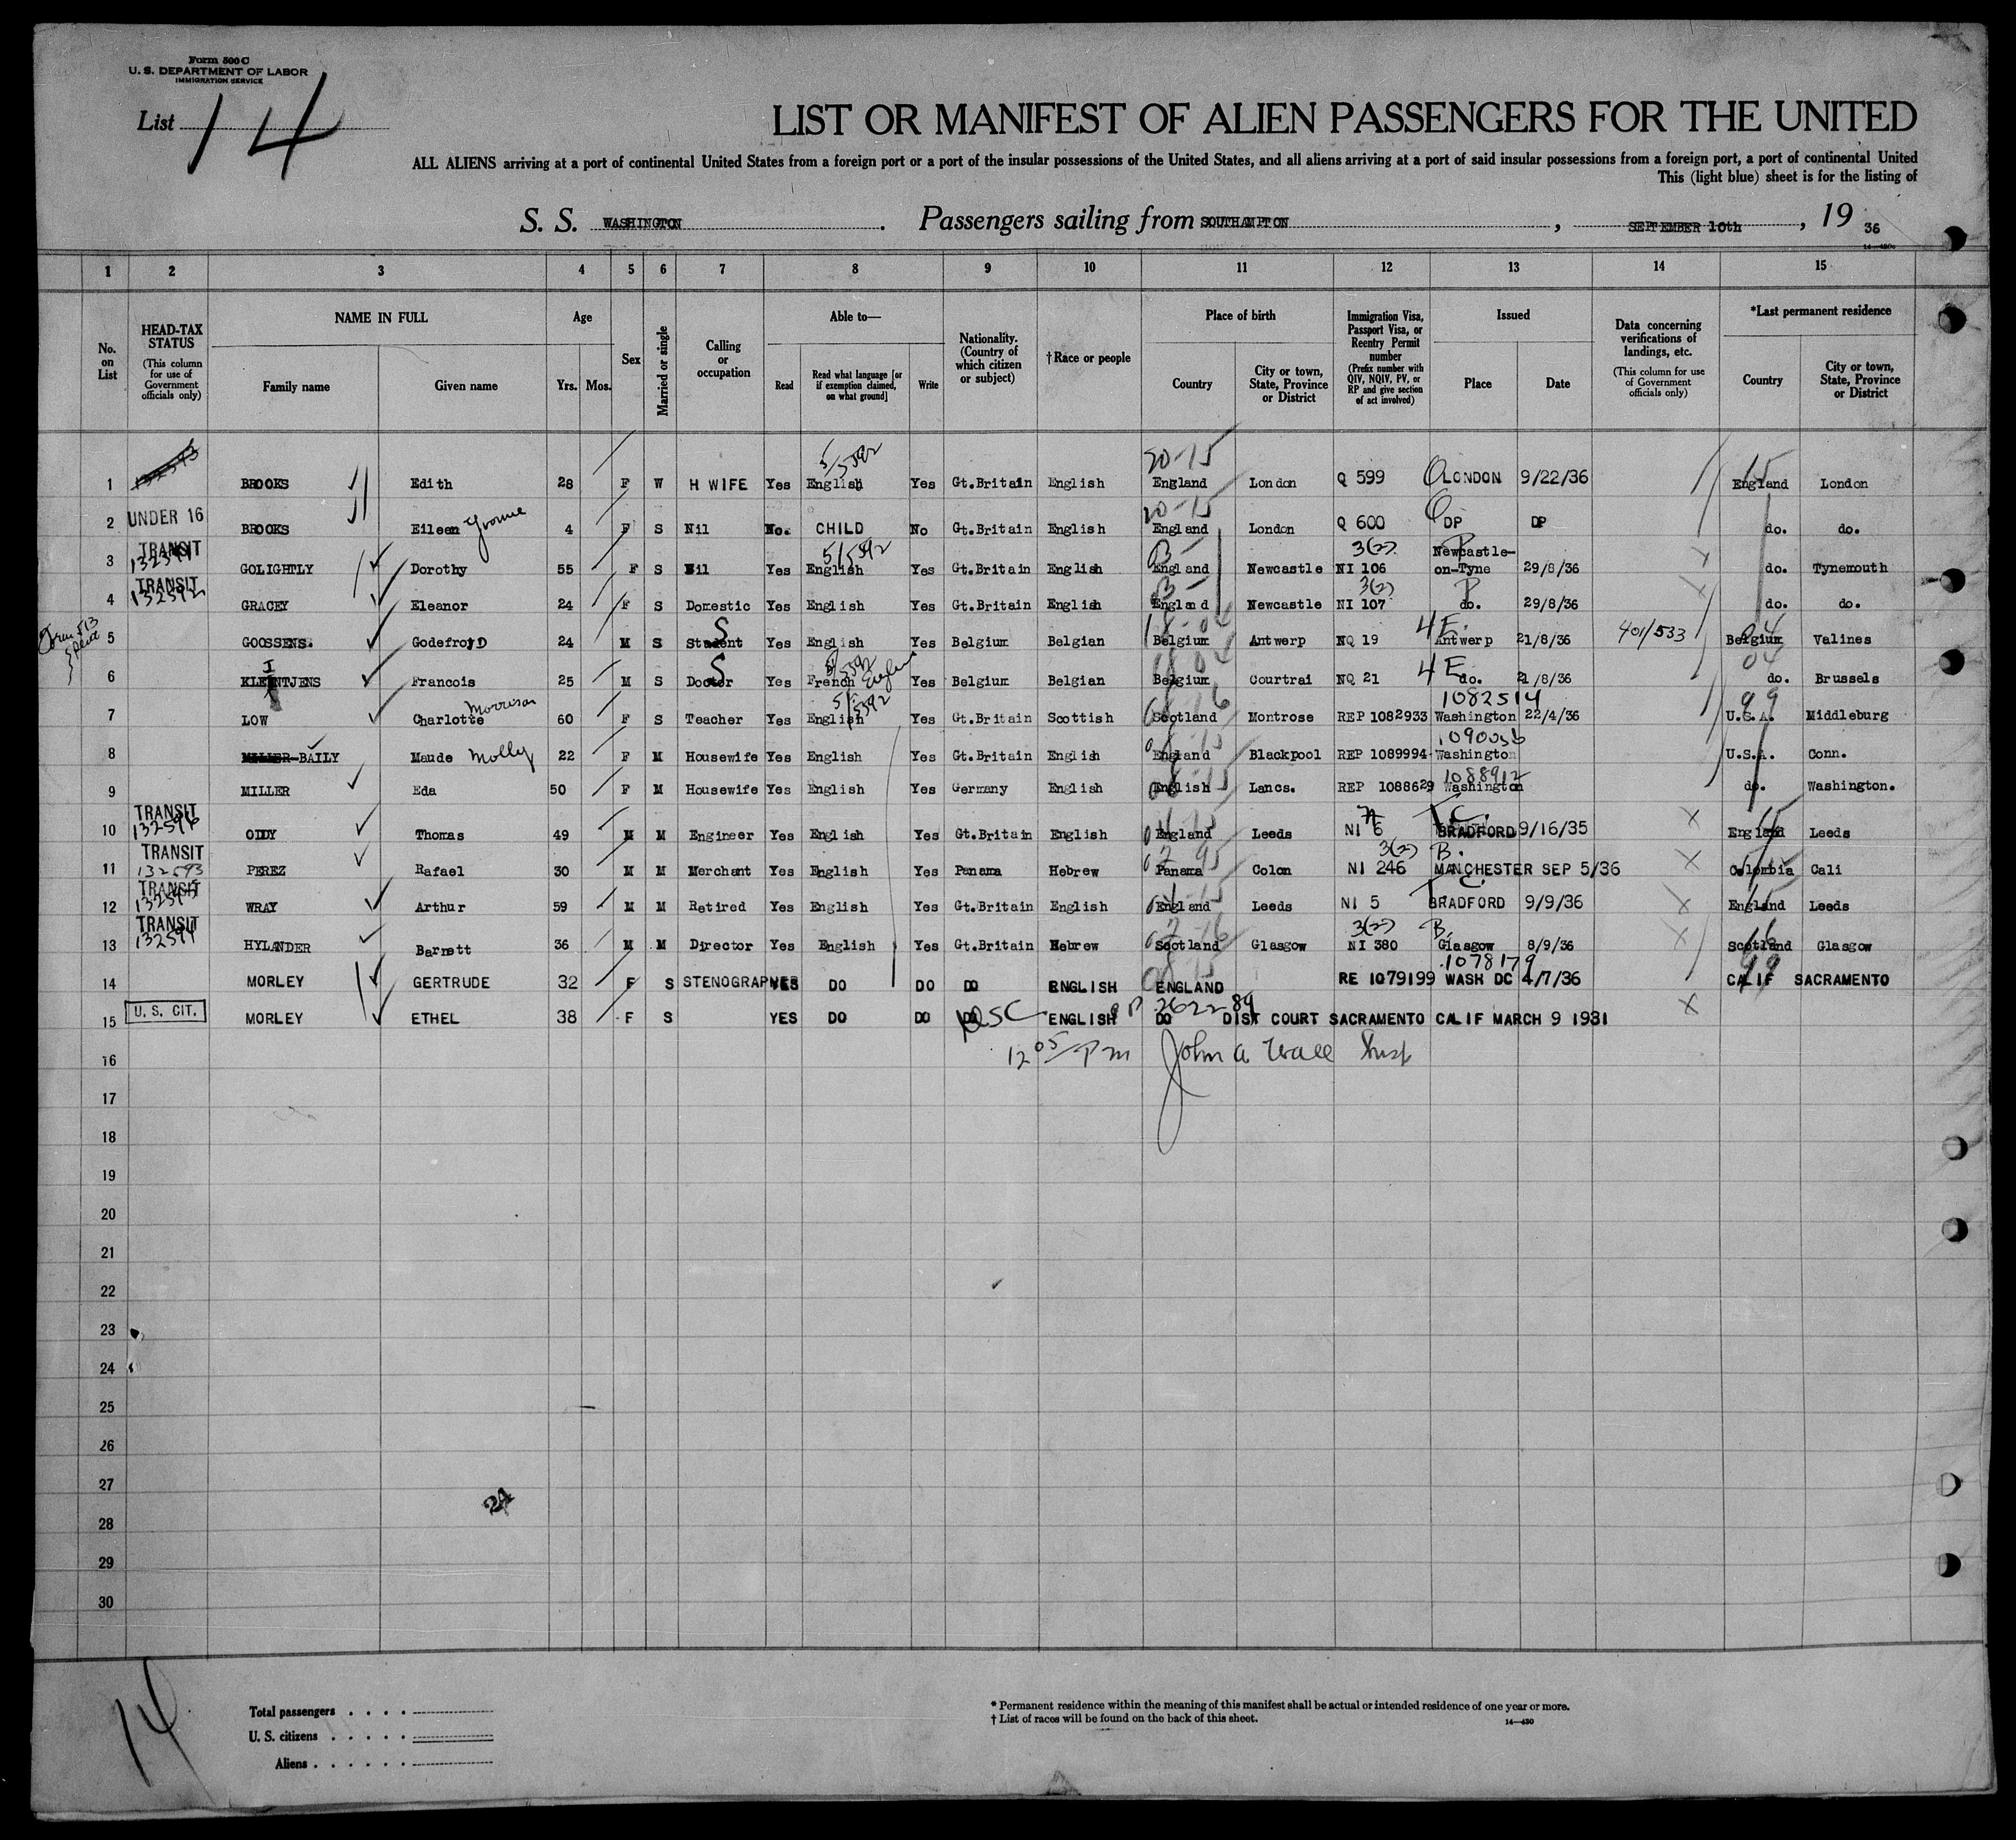 Form 500 C
U. S. DEPARTMENT OF LABOR
IMMIGRATION SERVICE
List 14
LIST OR MANIFEST OF ALIEN PASSENGERS FOR THE UNITED
ALL ALIENS arriving at a port of continental United States from a foreign port or a port of the insular possessions of the United States, and all aliens arriving at a port of said insular possessions from a foreign port, a port of continental United
This (light blue) sheet is for the listing of
S. S. WASHINGTON. Passengers sailing from SOUTHAMPTON, SEPTEMBER 10th, 1936
1 2 3 4 5 6 7 8 9 10 11 12 13 14 15
No. on List
HEAD-TAX STATUS (This column for use of Government officials only)
NAME IN FULL
Family name Given name
Age
Yrs. Mos.
Sex
Married or single
Calling or occupation
Able to—
Read
Read what language [or if exemption claimed, on what ground]
Write
Nationality. (Country of which citizen or subject)
†Race or people
Place of birth
Country
City or town, State, Province or District
Immigration Visa, Passport Visa, or Reentry Permit number (Prefix number with QIV, NQIV, PV, or RP and give section of act involved)
Issued
Place Date
Data concerning verifications of landings, etc. (This column for use of Government officials only)
*Last permanent residence
Country
City or town, State, Province or District
20-15
1 BROOKS Edith 28 F W H WIFE Yes English Yes Gt.Britain English England London Q 599 LONDON 9/22/36 England London
20-15
2 UNDER 16 BROOKS Eileen Yvonne 4 F S Nil No. CHILD No Gt.Britain English England London Q 600 DP DP do. do.
3 TRANSIT GOLIGHTLY Dorothy 55 F S Nil Yes English Yes Gt.Britain English England Newcastle 3(2) NI 106 Newcastle-on-Tyne 29/8/36 do. Tynemouth
4 TRANSIT 132592 GRACEY Eleanor 24 F S Domestic Yes English Yes Gt.Britain English England Newcastle 3(2) NI 107 do. 29/8/36 do. do.
5 GOOSSENS. Godefroyd 24 M S Student Yes English Yes Belgium Belgian Belgium Antwerp NQ 19 4E. Antwerp 21/8/36 401/533 Belgium Valines
6 KLEINTJENS Francois 25 M S Doctor Yes French English Yes Belgium Belgian Belgium Courtrai NQ 21 4E do. 21/8/36 do. Brussels
7 LOW Charlotte Morrison 60 F S Teacher Yes English Yes Gt.Britain Scottish Scotland Montrose REP 1082933 1082514 Washington 22/4/36 U.S.A. Middleburg
8 MILLER-BAILY Maude Molly 22 F M Housewife Yes English Yes Gt.Britain English England Blackpool REP 1089994 Washington U.S.A. Conn.
9 MILLER Eda 50 F M Housewife Yes English Yes Germany English English Lancs. REP 1088629 1088912 Washington do. Washington.
10 TRANSIT 132596 ODDY Thomas 49 M M Engineer Yes English Yes Gt.Britain English England Leeds NI 6 T.C. BRADFORD 9/16/35 England Leeds
11 TRANSIT 132593 PEREZ Rafael 30 M M Merchant Yes English Yes Panama Hebrew Panama Colon 3(2) NI 246 B. MANCHESTER SEP 5/36 Colombia Cali
12 TRANSIT 132595 WRAY Arthur 59 M M Retired Yes English Yes Gt.Britain English England Leeds NI 5 T.C. BRADFORD 9/9/36 England Leeds
13 TRANSIT 132594 HYLANDER Barnett 36 M M Director Yes English Yes Gt.Britain Hebrew Scotland Glasgow 3(2) NI 380 B. Glasgow 8/9/36 Scotland Glasgow
14 MORLEY GERTRUDE 32 F S STENOGRAPHER YES DO DO DO ENGLISH ENGLAND RE 1079199 1078179 WASH DC 4/7/36 CALIF SACRAMENTO
15 U. S. CIT. MORLEY ETHEL 38 F S YES DO DO DO USC ENGLISH PP 262289 DO DIST COURT SACRAMENTO CALIF MARCH 9 1931
16 12 05 PM John A Wall Insp
17
18
19
20
21
22
23
24
25
26
27
28
29
30
24
14
Total passengers
U. S. citizens
Aliens
* Permanent residence within the meaning of this manifest shall be actual or intended residence of one year or more.
† List of races will be found on the back of this sheet.
14—430